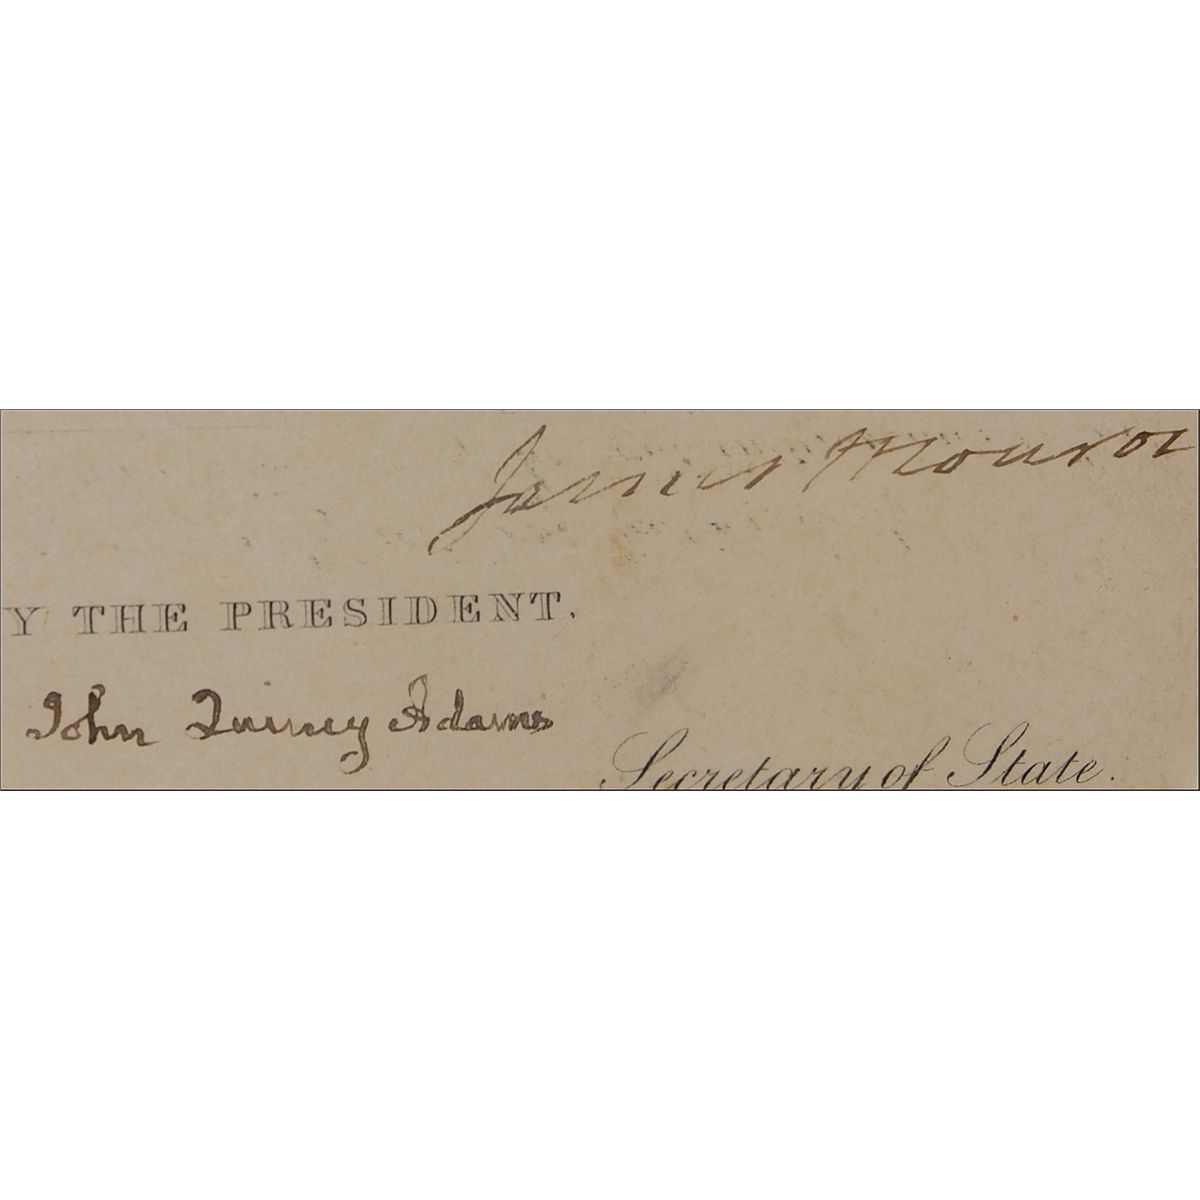 James Monroe
Y THE PRESIDENT.
John Quincy Adams
Secretary of State.